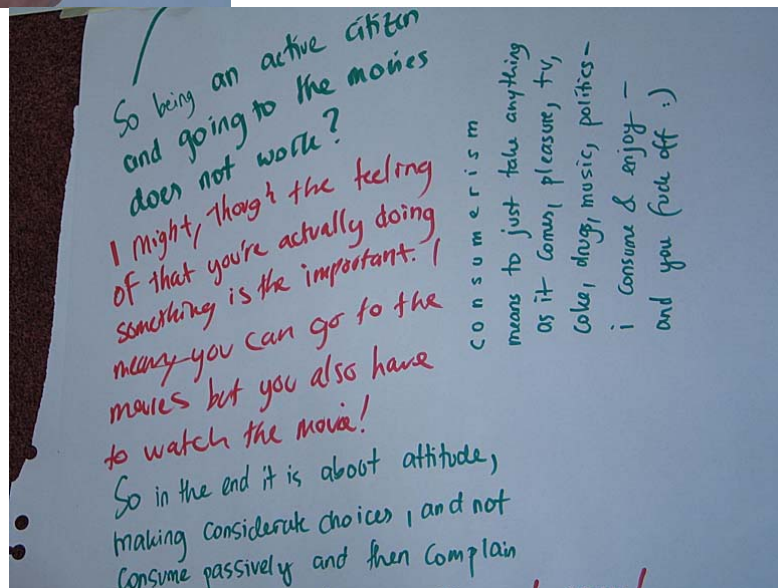 So being an active citizen
and going to the movies
does not work?
I might, though the feeling
of that you're actually doing
something is the important. I
mean you can go to the
movies but you also have
to watch the movie!
So in the end it is about attitude,
making considerate choices, and not
consume passively and then complain
consumerism
means to just take anything
as it comes, pleasure, tv,
coke, drugs, music, politics -
i consume & enjoy -
and you fuck off :)